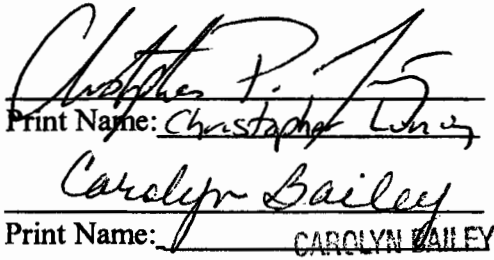 Christopher P.
Print Name: Christopher
Carolyn Bailey
Print Name: CAROLYN BAILEY